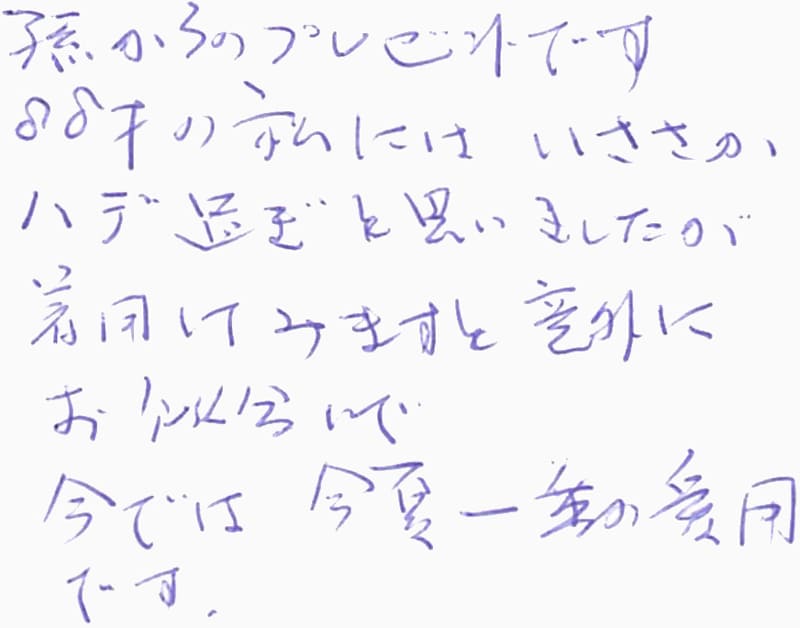 孫からのプレゼントです
88才の私には いささか
ハデ過ぎと思いましたが
着用してみますと意外に
お似合いで
今では 今夏一番の愛用
です.